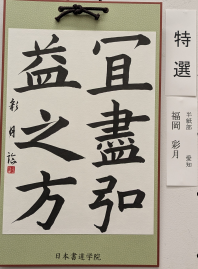 特選
半紙部 愛知
福岡 彩月
冝盡弘
益之方
彩月臨
日本書道学院